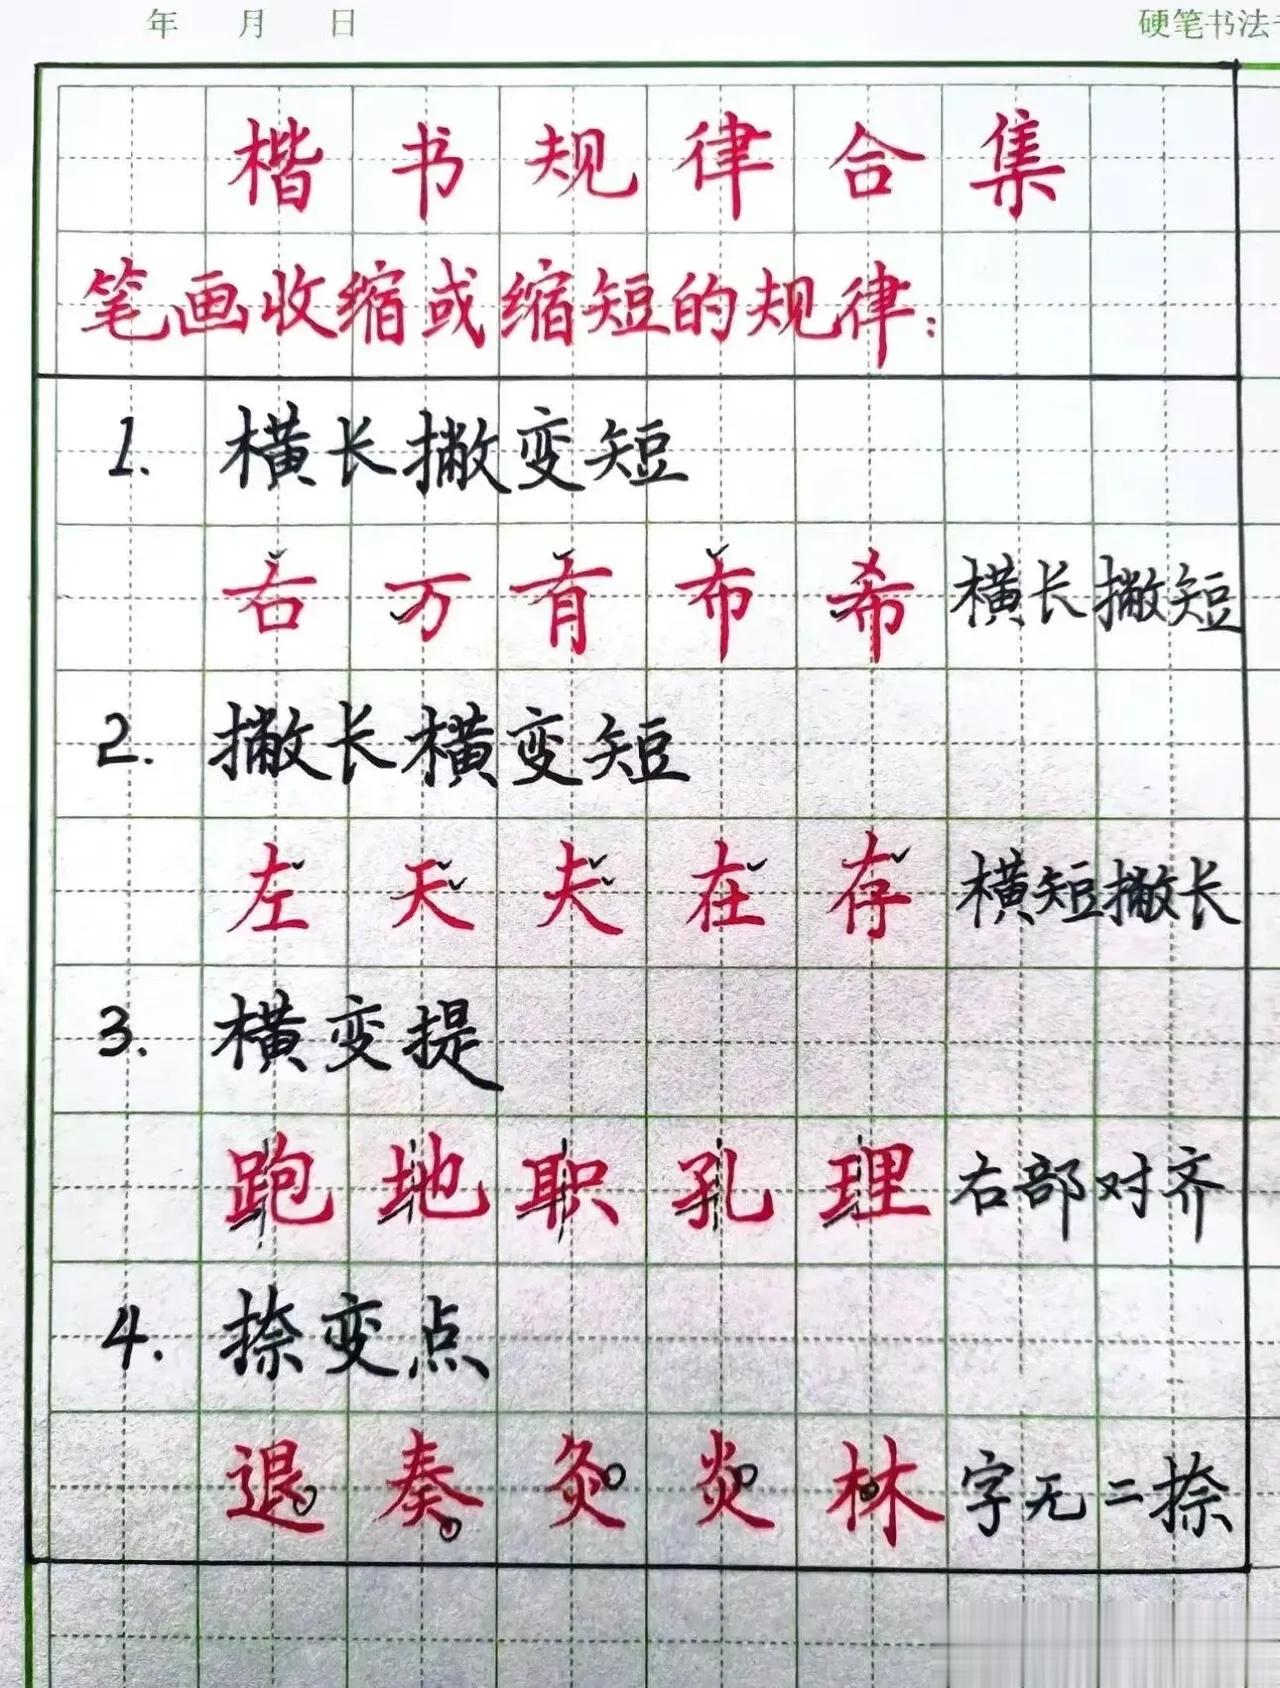 年 月 日 硬笔书法
楷书规律合集
笔画收缩或缩短的规律:
1. 横长撇变短
右万有布希 横长撇短
2. 撇长横变短
左天夫在存 横短撇长
3. 横变提
跑地职孔理 右部对齐
4. 捺变点
退奏灸炎林 字无二捺